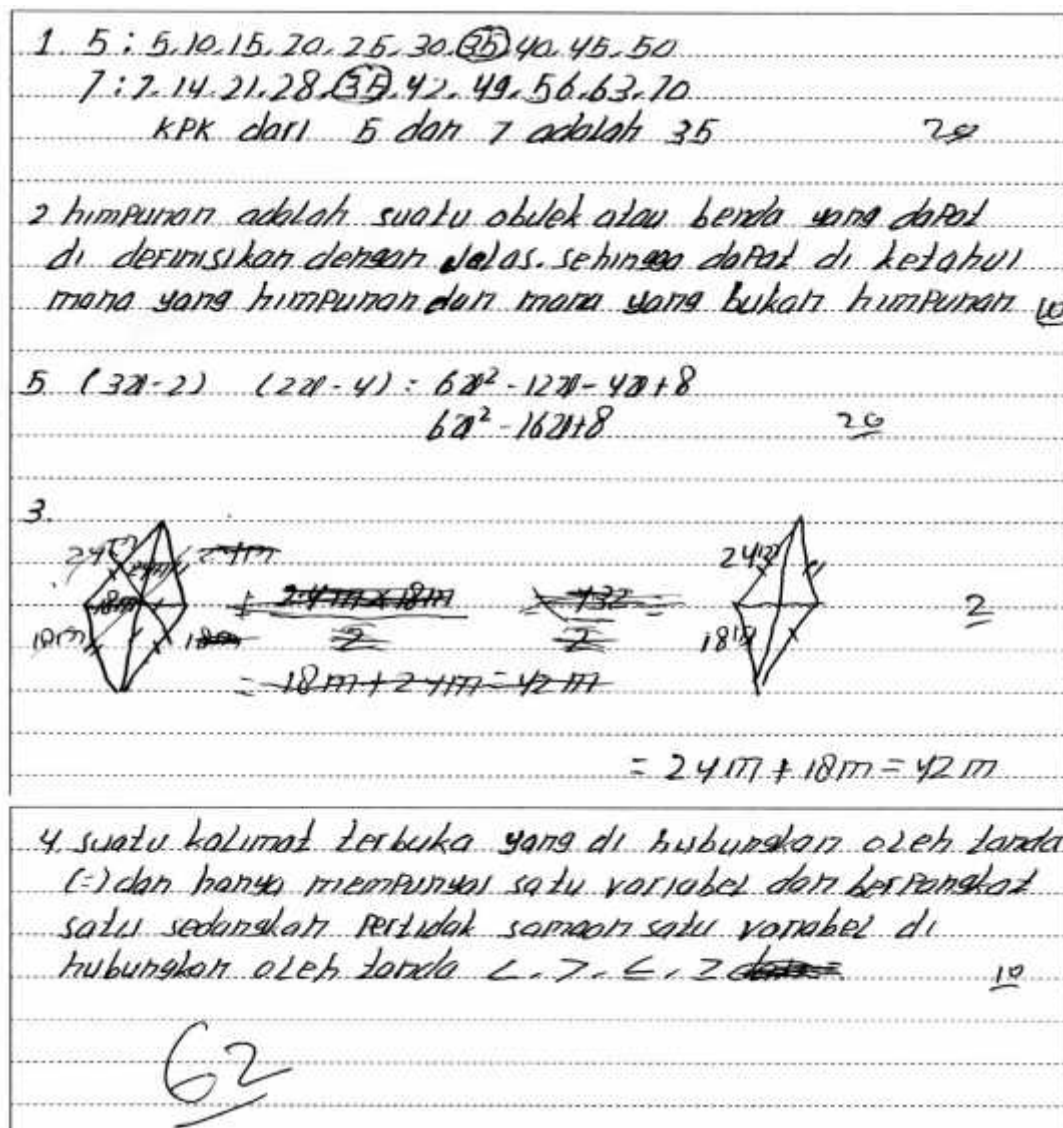 1. 5 : 5, 10, 15, 20, 25, 30, 35, 40, 45, 50
7 : 7, 14, 21, 28, 35, 42, 49, 56, 63, 70
KPK dari 5 dan 7 adalah 35 20
2 himpunan adalah suatu objek atau benda yang dapat
di definisikan dengan jelas. sehingga dapat di ketahui
mana yang himpunan dan mana yang bukan himpunan 10
5 (3x - 2) (2x - 4) = 6x² - 12x - 4x + 8
6x² - 16x + 8 20
3.
24m 24m
18m
18m
24m x 18m
2
432
2
= 18m + 24m = 42m
24m
18m
2
= 24m + 18m = 42m
4. suatu kalimat terbuka yang di hubungkan oleh tanda
(=) dan hanya mempunyai satu variabel dan berpangkat
satu sedangkan pertidak samaan satu variabel di
hubungkan oleh tanda <, >, ≤, ≥ 10
62